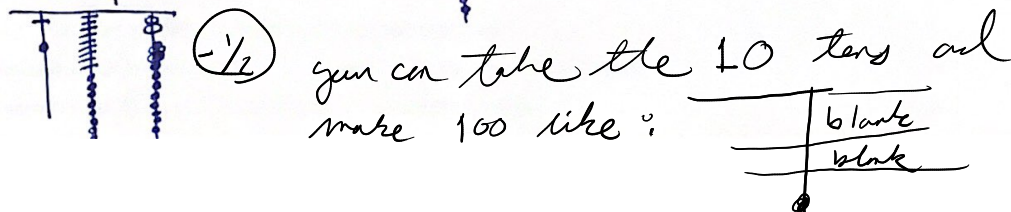 -1/2 you can take the 10 tens and
make 100 like :
blank
blank